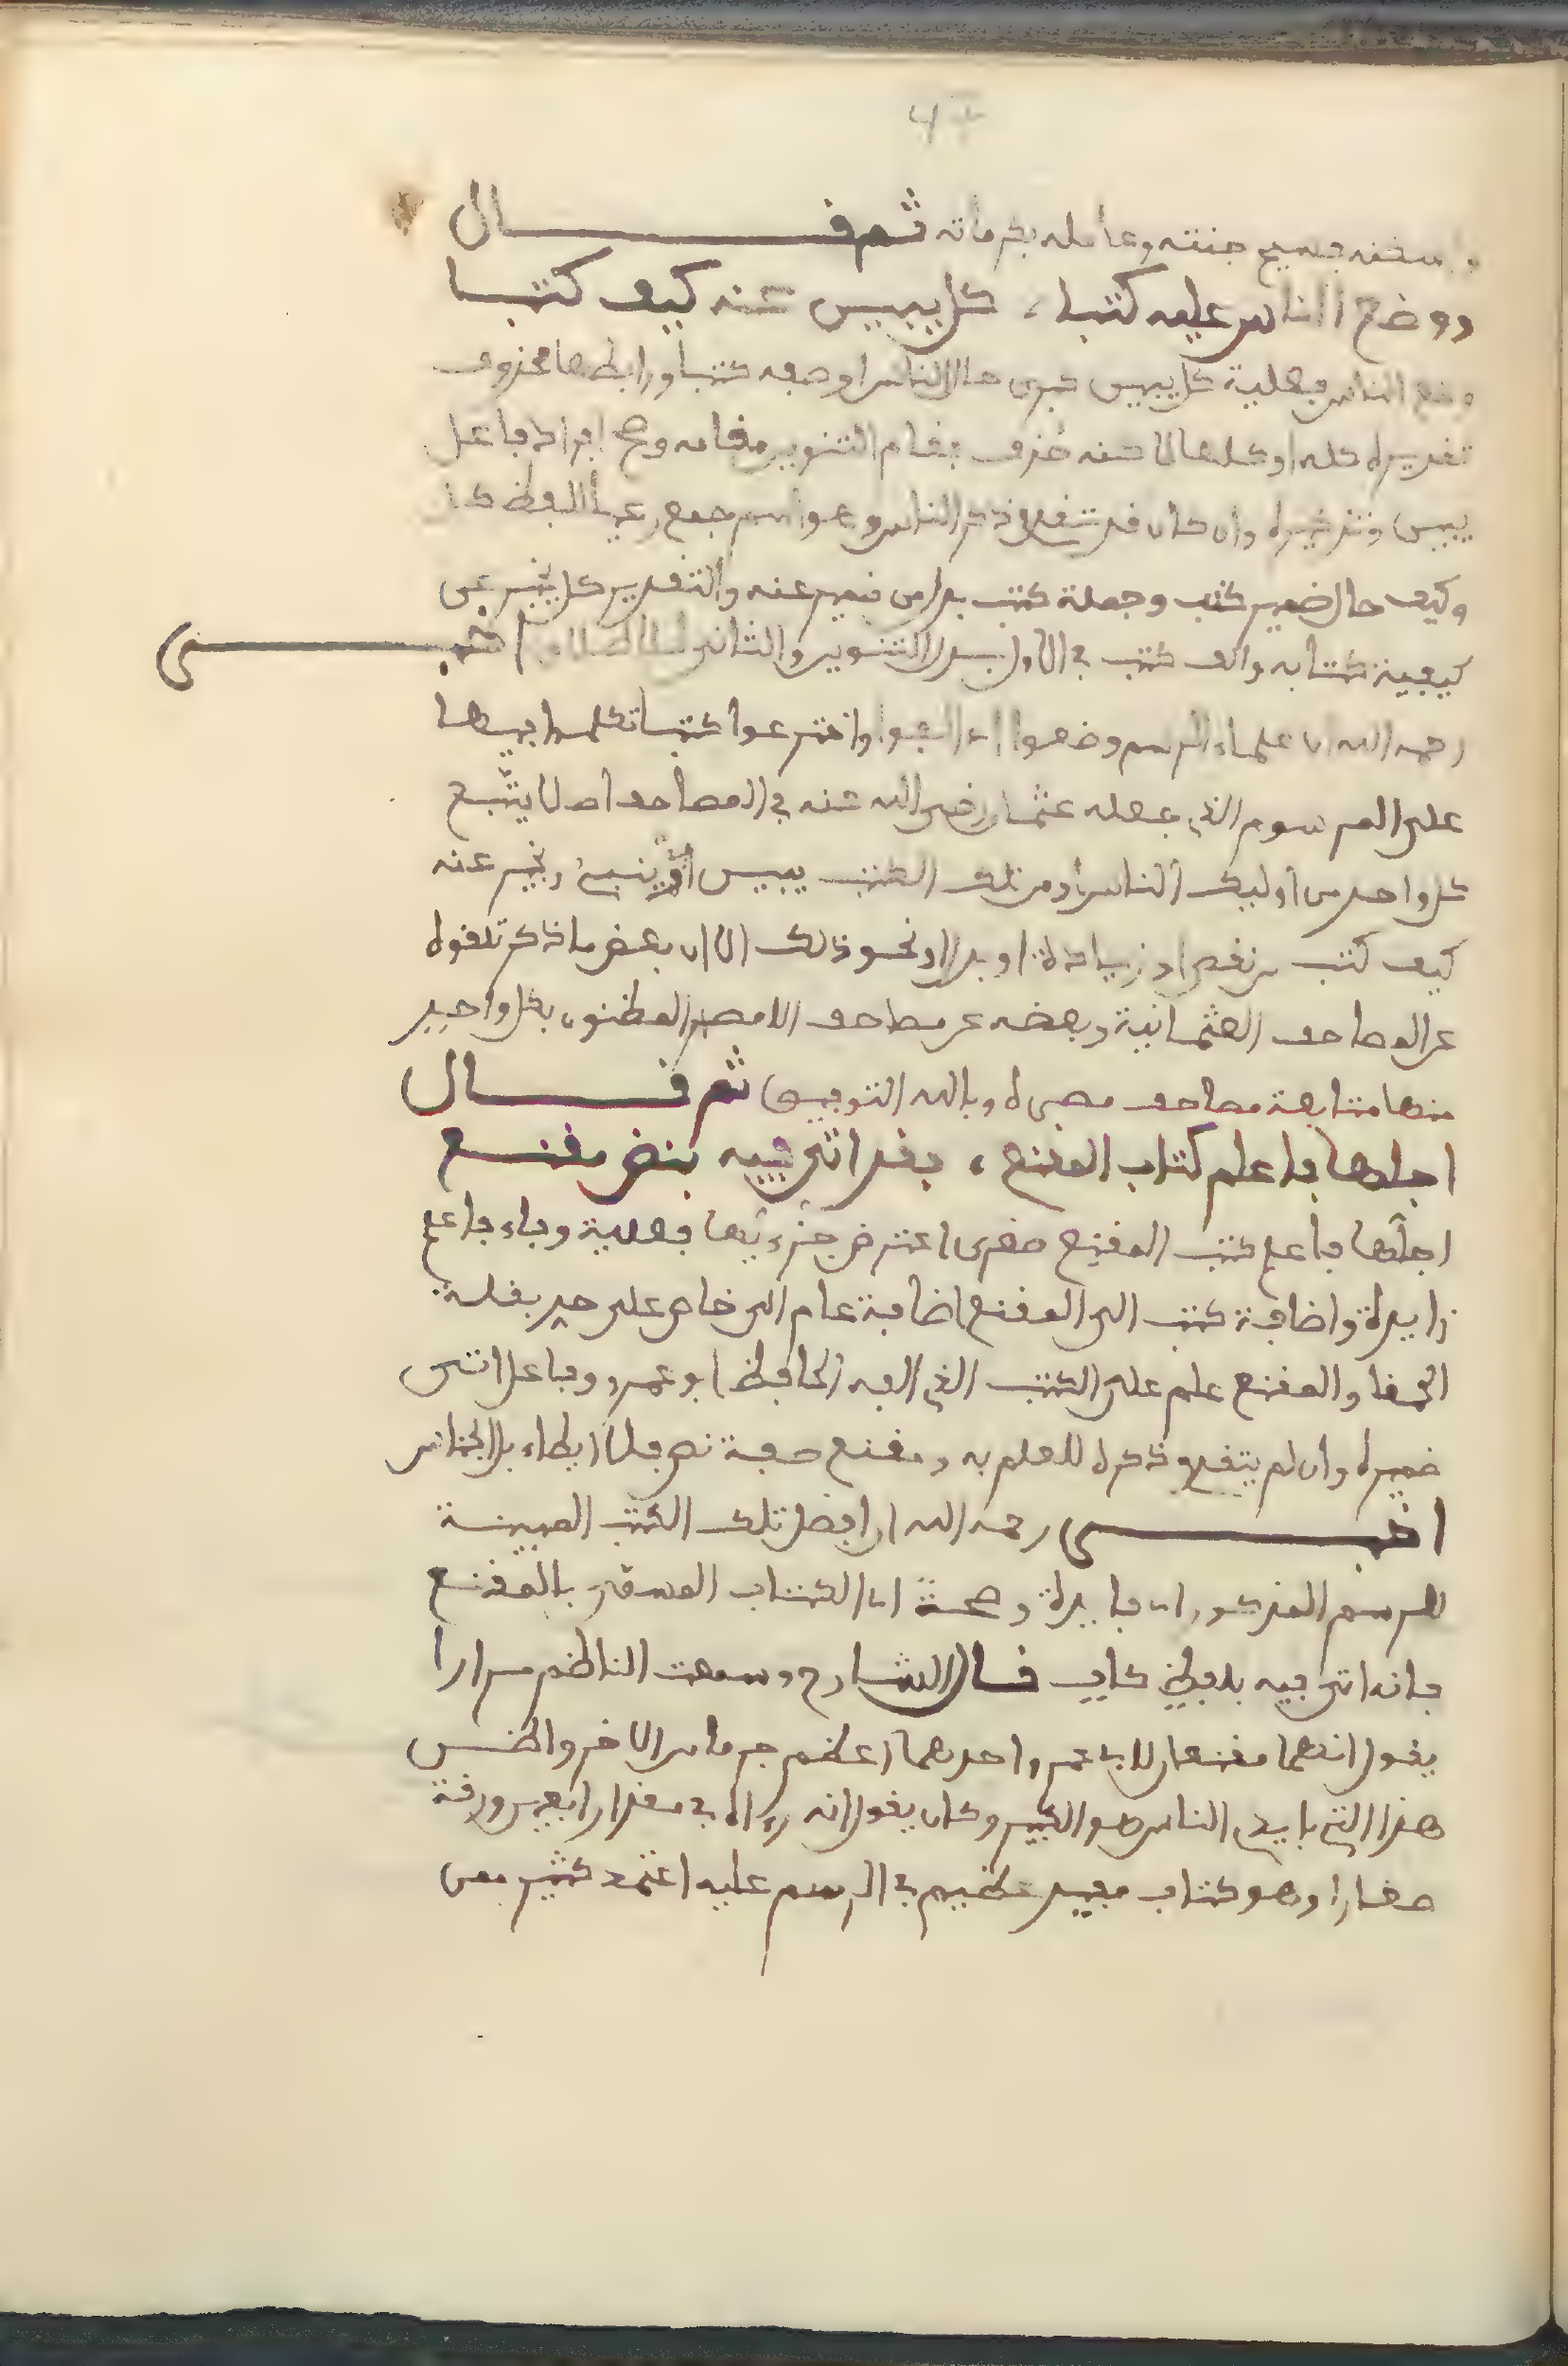 واسكنه بجميع جنته وعامله بكرماته ثم قال
ووضع الناس عليه كتبا ، كل يبين عنه كيف كتبا
وضع الناس فعلية كل يبين كبرى حال الناس او صفة كتبا ورابطها محذوف
تقديره كله او كلها لاكنه حذف فقام التنوين مقامه وصح ابراد فاعل
يبين وتذكيره وان كان قد تقدم ذكر الناس وهو اسم جمع رعيا للفظ كل
وكيف حال ضمير كتب وجملة كتب بدل من ضمير عنه والتقدير كل يخبر عن
كيفية كتابه والف كتب في الاول بدل التنوين والثاني للاطلاق اخبر
رحمه الله ان علماء الرسم وضعوا اي الفوا واخترعوا كتبا تكلموا فيها
على المرسوم الذي جعله عثمان رضي الله عنه في المصاحف اصلا يتبع
كل واحد من اوليك الناس او من تلك الكتب يبين اي ينبئ ويخبر عنه
كيف كتب من نقص او زيادة او بدل او نحو ذلك الا ان بعض ما ذكر تلقوه
عن المصاحف العثمانية وبعضه عن مصاحف الامصار المظنون بكل واحد
منها متابعة مصاحف مصره وبالله التوفيق ثم قال
اجلها فاعلم كتاب المقنع ، فقد اتى فيه بنص مقنع
اجلها فاعلم كتب المقنع صغرى اعترض جزءيها فعلية وفاء فاعلم
زايدة واضافة كتب الى المقنع اضافة عام الى خاص على حد بقلة
الحمقا والمقنع علم على الكتب الذي الفه الحافظ ابو عمرو وفاعل اتى
ضميره وان لم يتقدم ذكره للعلم به ومقنع صفة نص فلا ايطاء بل الجناس
اخبر رحمه الله ان افضل تلك الكتب المبينة
للرسم المذكور اي فايدة وصحة اي الكتاب المسمى بالمقنع
فانه اتى فيه بلفظ كاف قال الشارح وسمعت الناظم مرارا
يقول انهما مقنعان لابي عمرو احدهما اعظم جرما من الاخر واظن
هذا الذي بايدي الناس هو الكبير وكان يقول انه رءاه في مقدار اربعين ورقة
صغارا وهو كتاب مفيد عظيم في الرسم عليه اعتمد كثير ممن